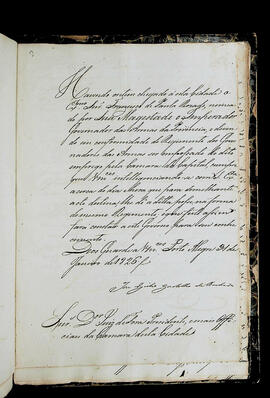 Havendo ontem chegado á esta Cidade o
Exmo Snr. Francisco de Paula Damasc, nomea-
do por Sua Magestade o Imperador
Governador das Armas da Provincia, e deven-
do na conformidade do Regimento dos Go-
vernadores das Armas ser
pela Camara da Capital, cumpre
que Vmces com S. Exa
acerca do dia, e hora que para semelhante
acto declara, Me dê delle posse, na forma
do mesmo Regimento, e que feito
constar a este Governo para seu conhe-
cimento.
Deos Guarde a Vmces Porto Alegre 31 de
Janeiro de 1826
José
Snrs. Dor Juiz de Fora Presidente, e mais Offi-
ciaes da Camara desta Cidade